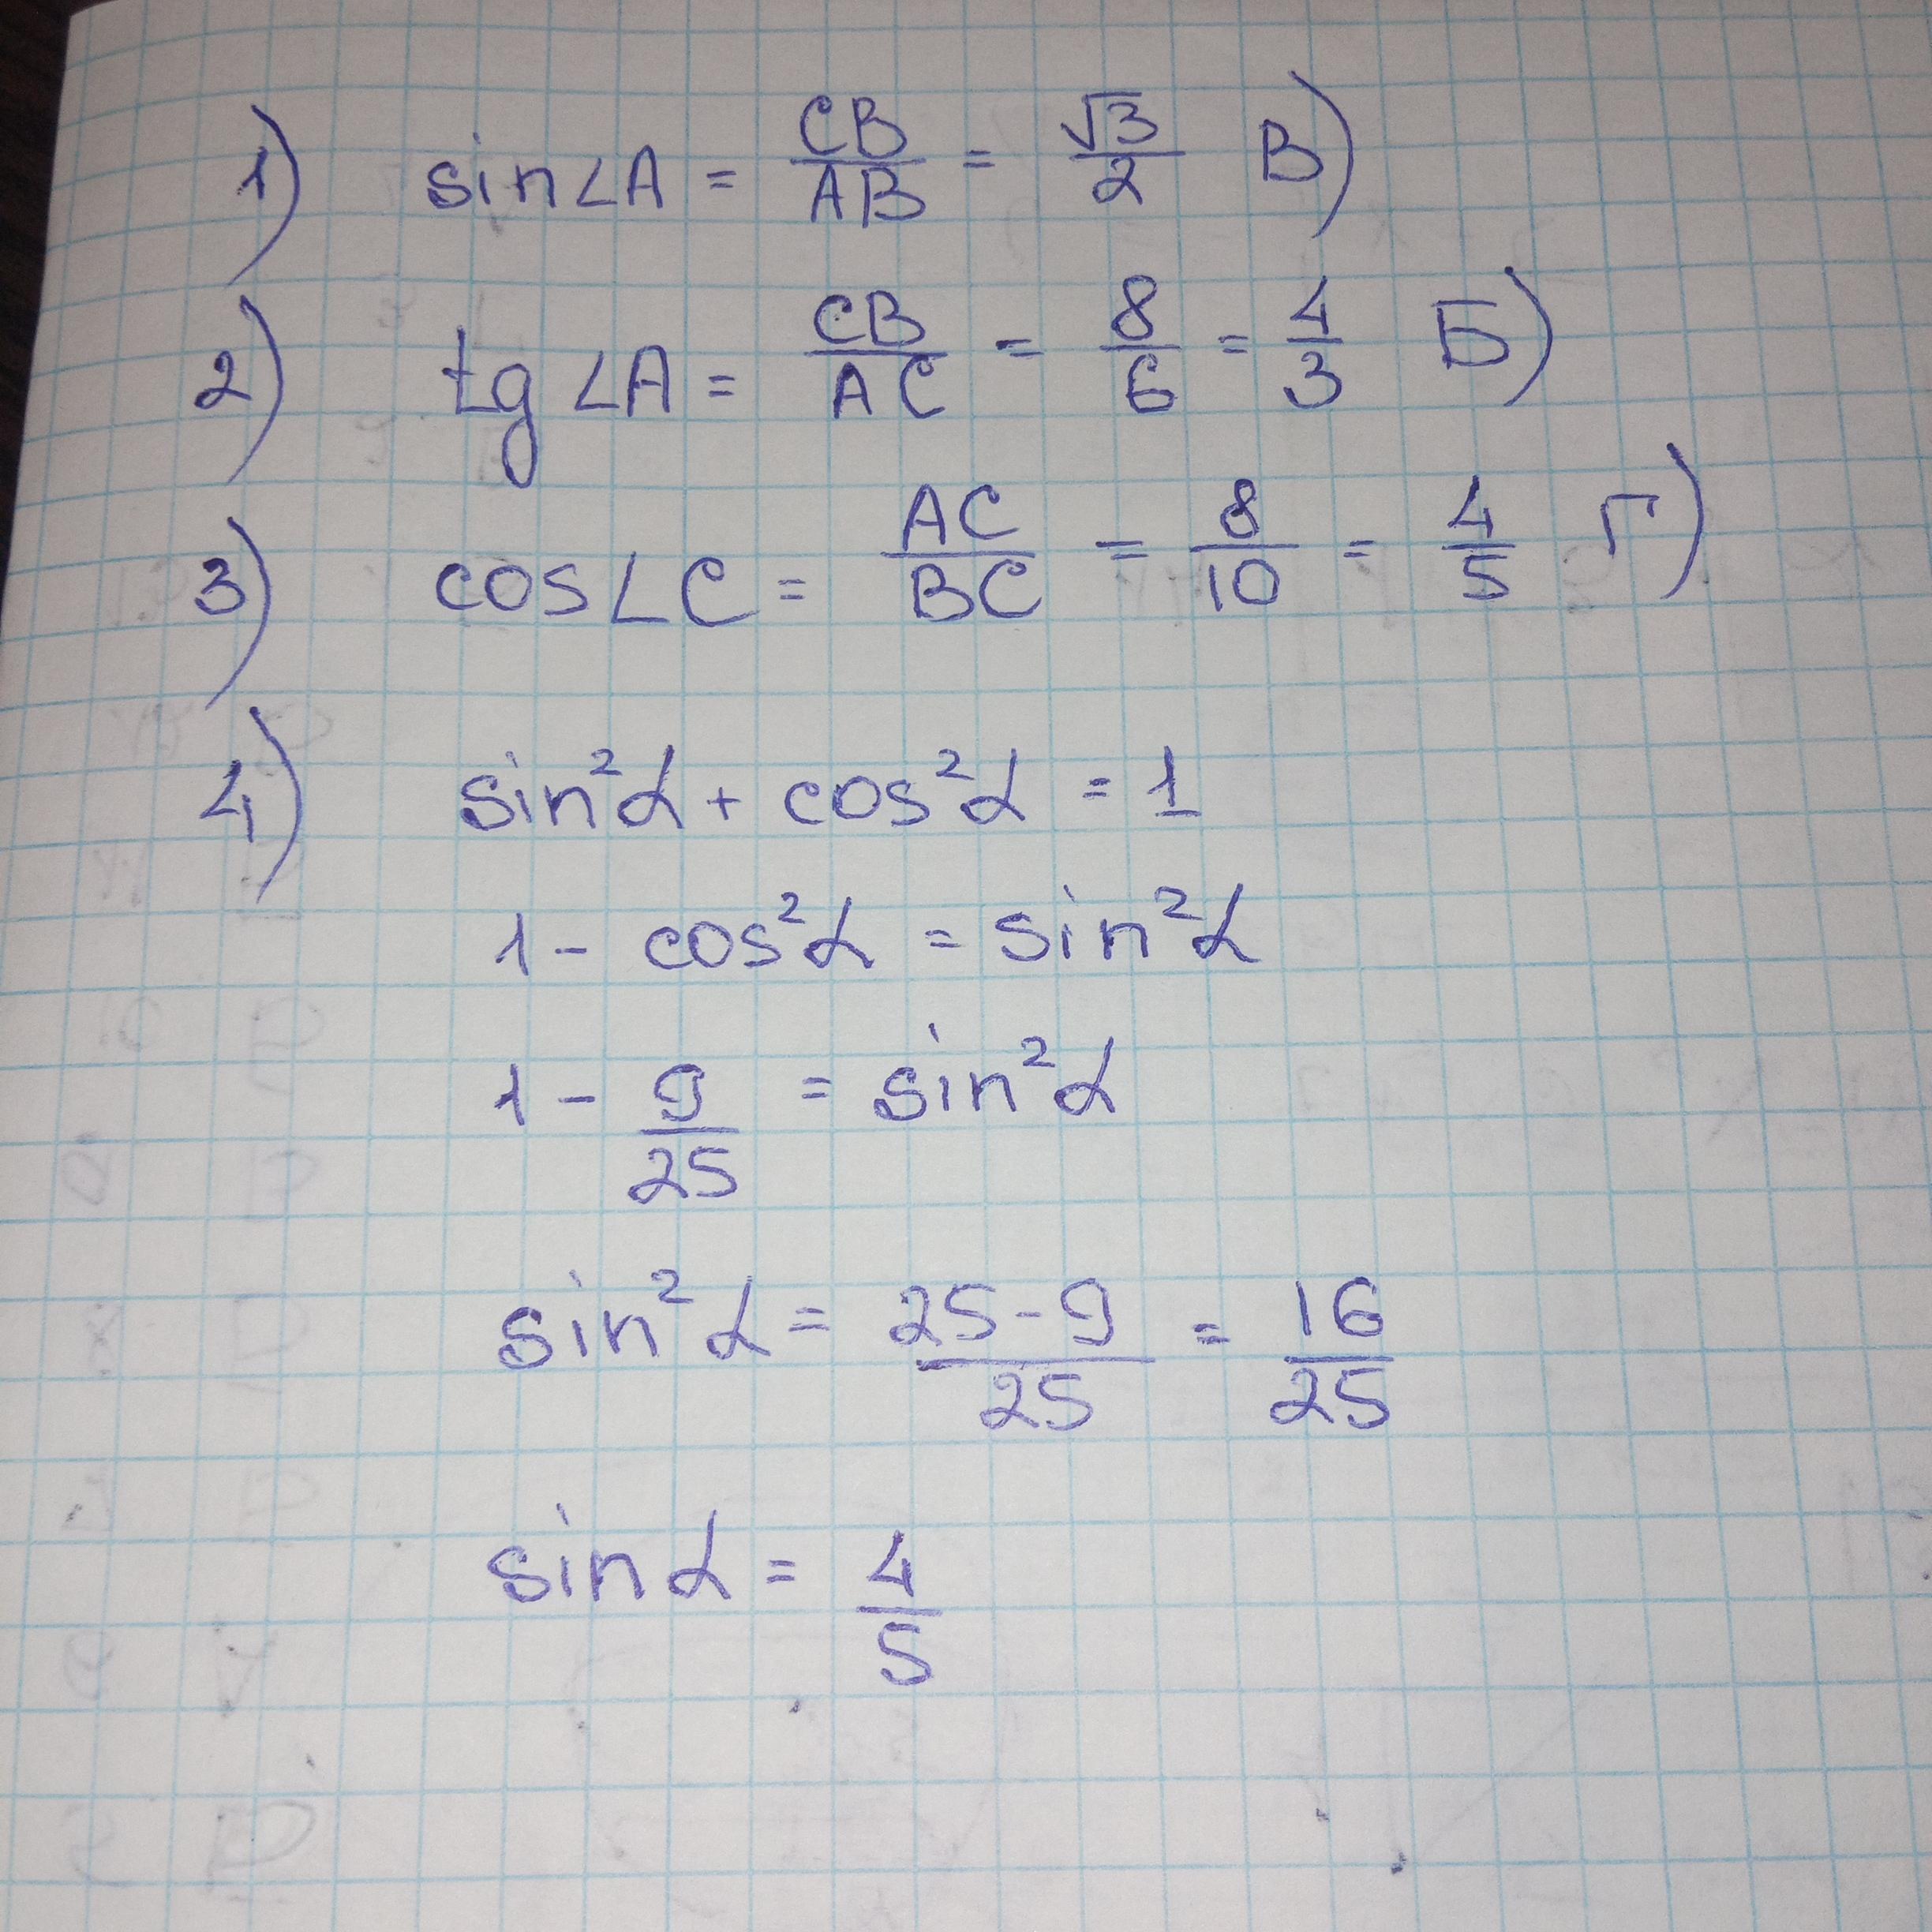 1) sin∠A = CB/AB = √3/2 В)
2) tg∠A = CB/AC = 8/6 = 4/3 Б)
3) cos∠C = AC/BC = 8/10 = 4/5 Г)
4) sin²α + cos²α = 1
1 - cos²α = sin²α
1 - 9/25 = sin²α
sin²α = 25-9/25 = 16/25
sinα = 4/5